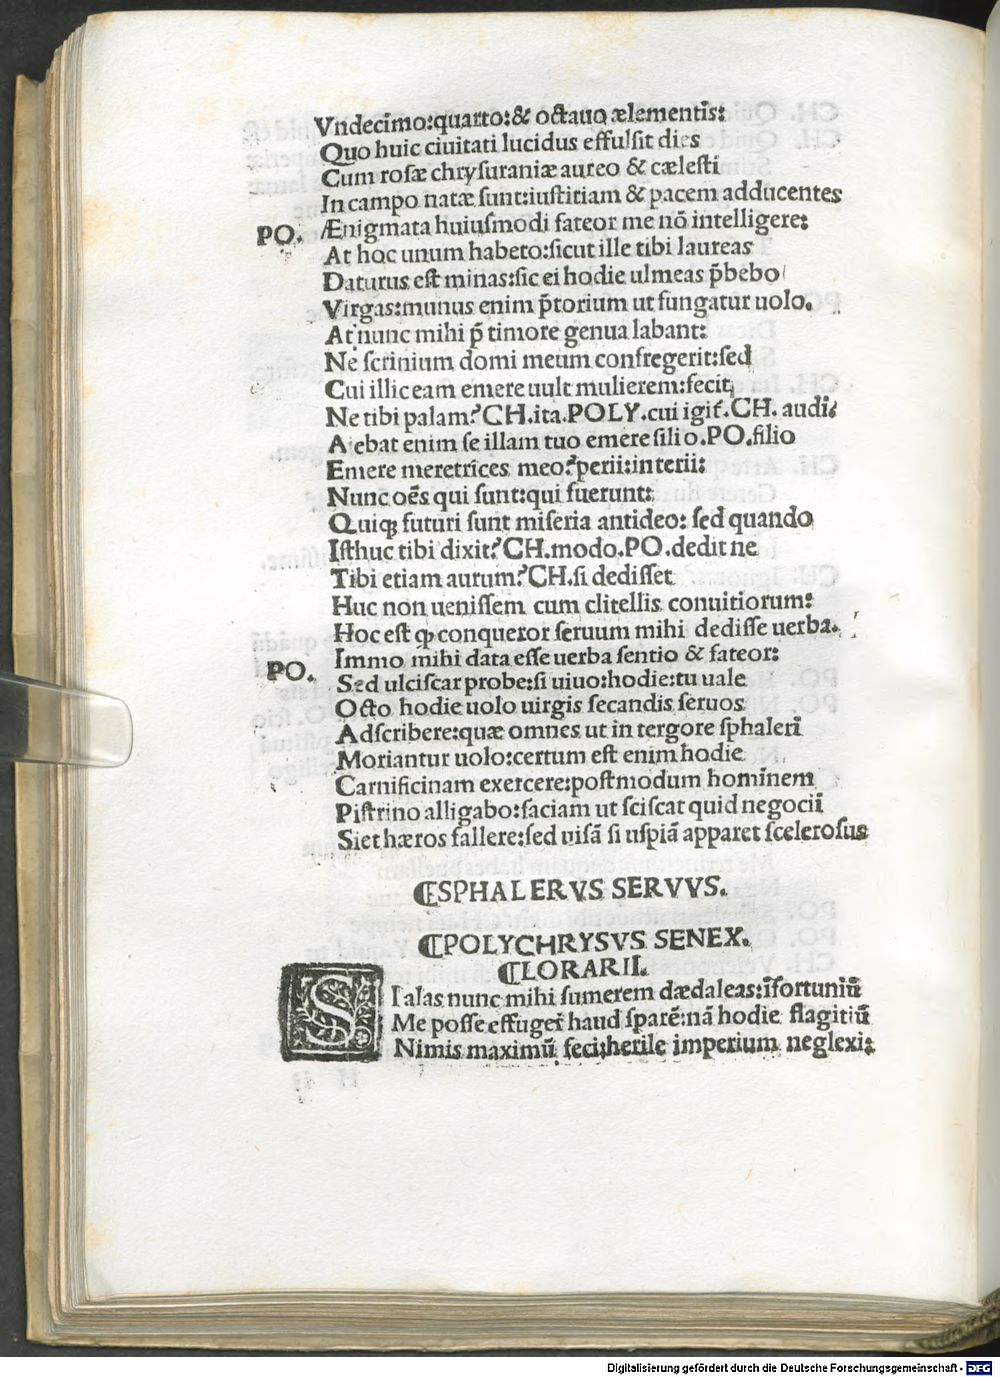 Vndecimo:quarto:& octauo ælementis:
Quo huic ciuitati lucidus effulsit dies
Cum rosæ chrysuraniæ aureo & cælesti
In campo natæ sunt:iustitiam & pacem adducentes
PO. Ænigmata huiusmodi fateor me nō intelligere:
At hoc unum habeto:sicut ille tibi laureas
Daturus est minas:sic ei hodie ulmeas p̄bebo
Virgas:munus enim p̄torium ut fungatur uolo.
At nunc mihi p̄ timore genua labant:
Ne scrinium domi meum confregerit:sed
Cui illic eam emere uult mulierem:fecit
Ne tibi palam? CH.ita.POLY.cui igit̄.CH. audi:
Aiebat enim se illam tuo emere filio.PO.filio
Emere meretrices meo?perii:interii:
Nunc oēs qui sunt:qui fuerunt:
Quiqꝫ futuri sunt miseria antideo: sed quando
Isthuc tibi dixit?CH.modo.PO.dedit ne
Tibi etiam aurum?CH.si dedisset
Huc non uenissem cum clitellis conuitiorum:
Hoc est ꝙ conqueror seruum mihi dedisse uerba.
PO. Immo mihi data esse uerba sentio & fateor:
Sed ulciscar probe:si uiuo:hodie:tu uale
Octo hodie uolo uirgis secandis seruos
Adscribere:quæ omnes ut in tergore sphaleri
Moriantur uolo:certum est enim hodie
Carnificinam exercere:postmodum hominem
Pistrino alligabo:faciam ut sciscat quid negocii
Siet hæros fallere:sed uisā si uspiā apparet scelerosus
⸿SPHALERVS SERVVS.
⸿POLYCHRYSVS SENEX.
⸿LORARII.
SI alas nunc mihi sumerem dædaleas:īfortuniū
Me posse effuger̄ haud sparē:nā hodie flagitiū
Nimis maximū feci:herile imperium neglexi:
Digitalisierung gefördert durch die Deutsche Forschungsgemeinschaft - DFG